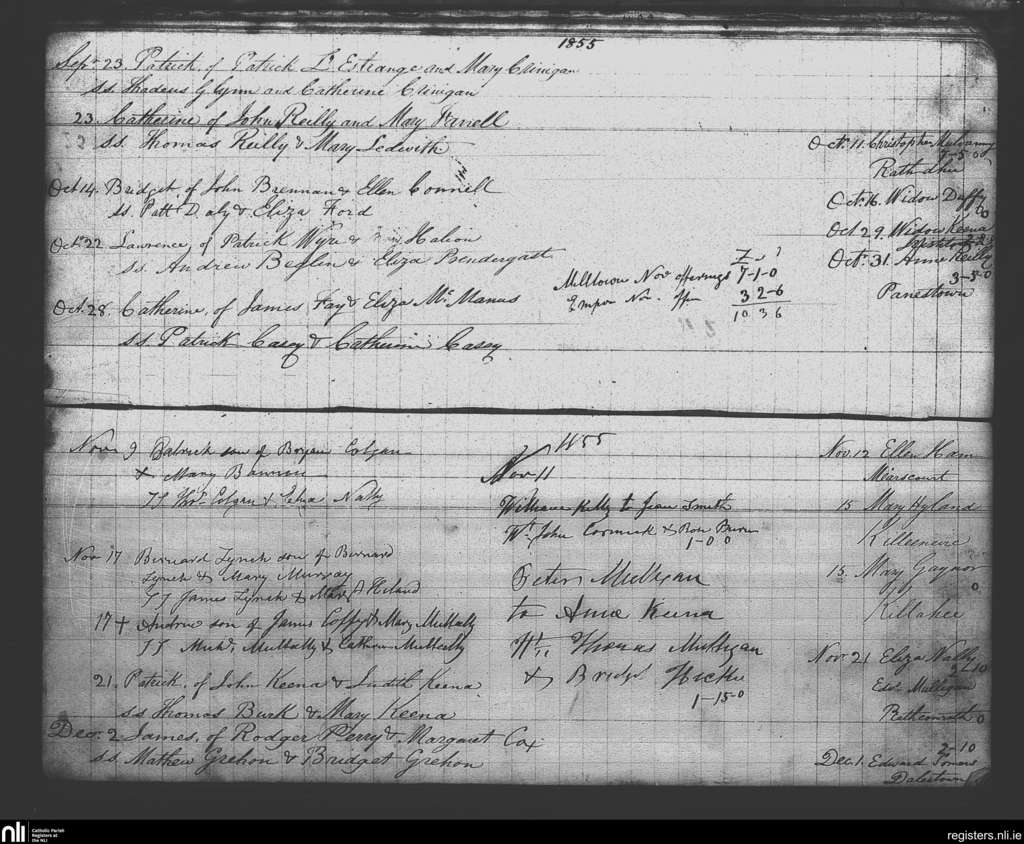 1855
Sepr 23. Patrick, of Patrick L'Estrange and Mary Crinigan
ss. Thadeus Glynn and Catherine Crinigan
23. Catherine of John Reilly and Mary Farrell
ss. Thomas Reilly & Mary Ledwith
Oct 14. Bridget, of John Brennan & Ellen Connell
ss. Patt Daly & Eliza Ford
Octr 22 Lawrence, of Patrick Wyre & Halion
ss. Andrew Beglin & Eliza Prendergast
Oct. 28. Catherine, of James Fay & Eliza Mc Manus
ss. Patrick Casey & Catherine Casey
Milltown Nov offerings 7-1-0
Empor Nov. 3 2-6
10 3 6
Oct. 11. Christopher Mulvanny
Rath
Octr 16. Widow Daffy
Oct 29. Widow Keena
Octr. 31. Anne Reilly
3-5-0
Panestown
Nov 9 Patrick son of Bryan Colgan
& Mary Bannon
SS Thos. Colgan & Eliza Nally
Nov 17 Bernard Lynch son of Bernard
Lynch & Mary Murray
SS James Lynch & Mary A Heland
17 + Andrew son of James Coffy & Mary Mulally
SS Michl. Mullally & Catherine Mullally
21. Patrick, of John Keena & Judith Keena
ss Thomas Burk & Mary Keena
Decr. 2. James, of Rodger Perry & Margaret Cox
ss. Mathew Grehon & Bridget Grehon
1855
Nov 11
William Kelly to Jane Smith
Wt. John Cormick & Rose
1-0 0
Peter Mulligan
to Anne Keena
Wt. Thomas Mulligan
& Bridgt Hickie
1-15-0
Nov. 12 Ellen Ham
Mearscourt
15 Mary Hyland
Killeenere
15 Mary Gaynor
0
Killahee
Nov 21 Eliza Nally
2-10
Edwd. Mulligan
Rathconrath 0
2-10
Dec 1. Edward Somers
Dalestown
nli
Catholic Parish
Registers at
the NLI
registers.nli.ie